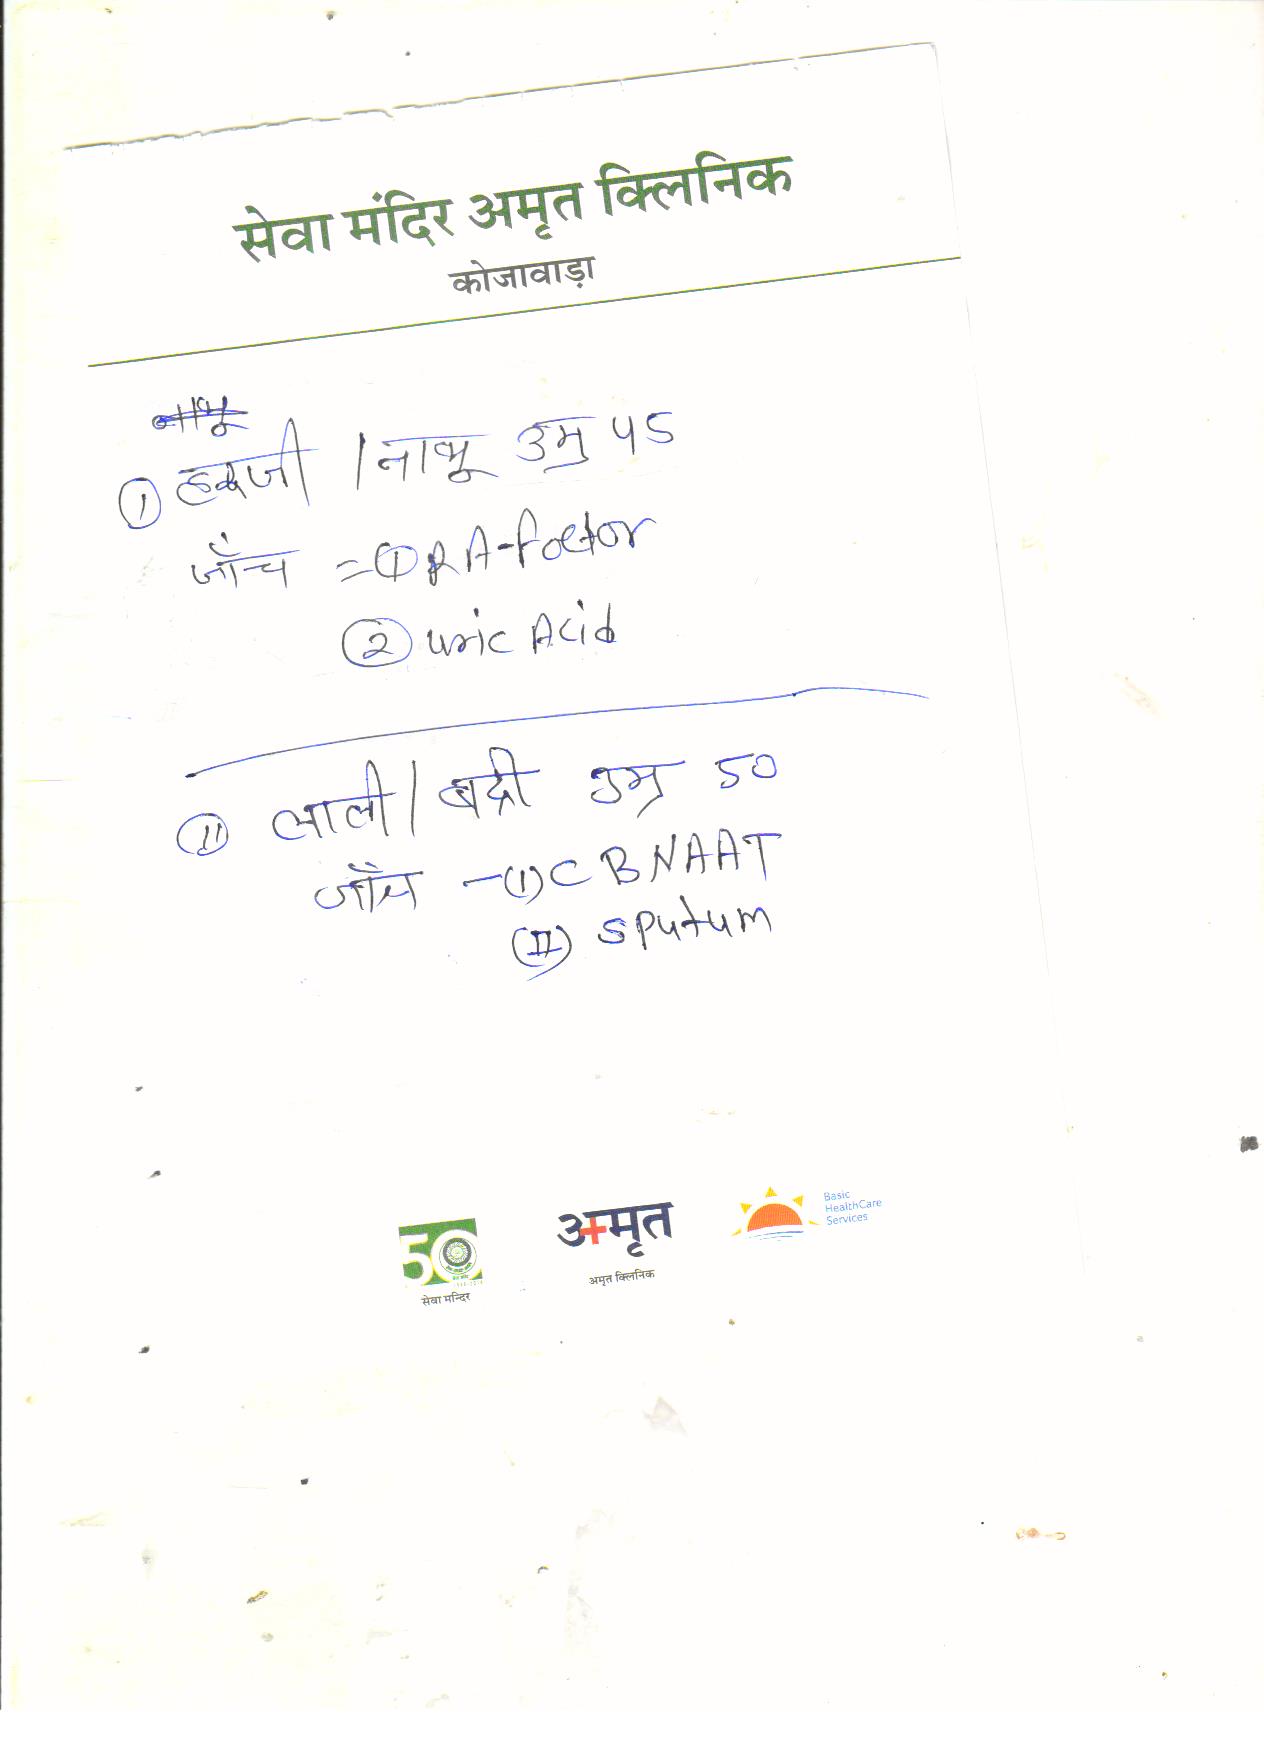 सेवा मंदिर अमृत क्लिनिक
कोजावाड़ा
नाथू
① हकजी / नाथू उम्र 45
जाँच = ① RA-factor
② uric Acid
② लाली / बद्री उम्र 50
जाँच - (I) CBNAAT
(II) sputum
50
सेवा मन्दिर
अमृत
अमृत क्लिनिक
Basic
HealthCare
Services